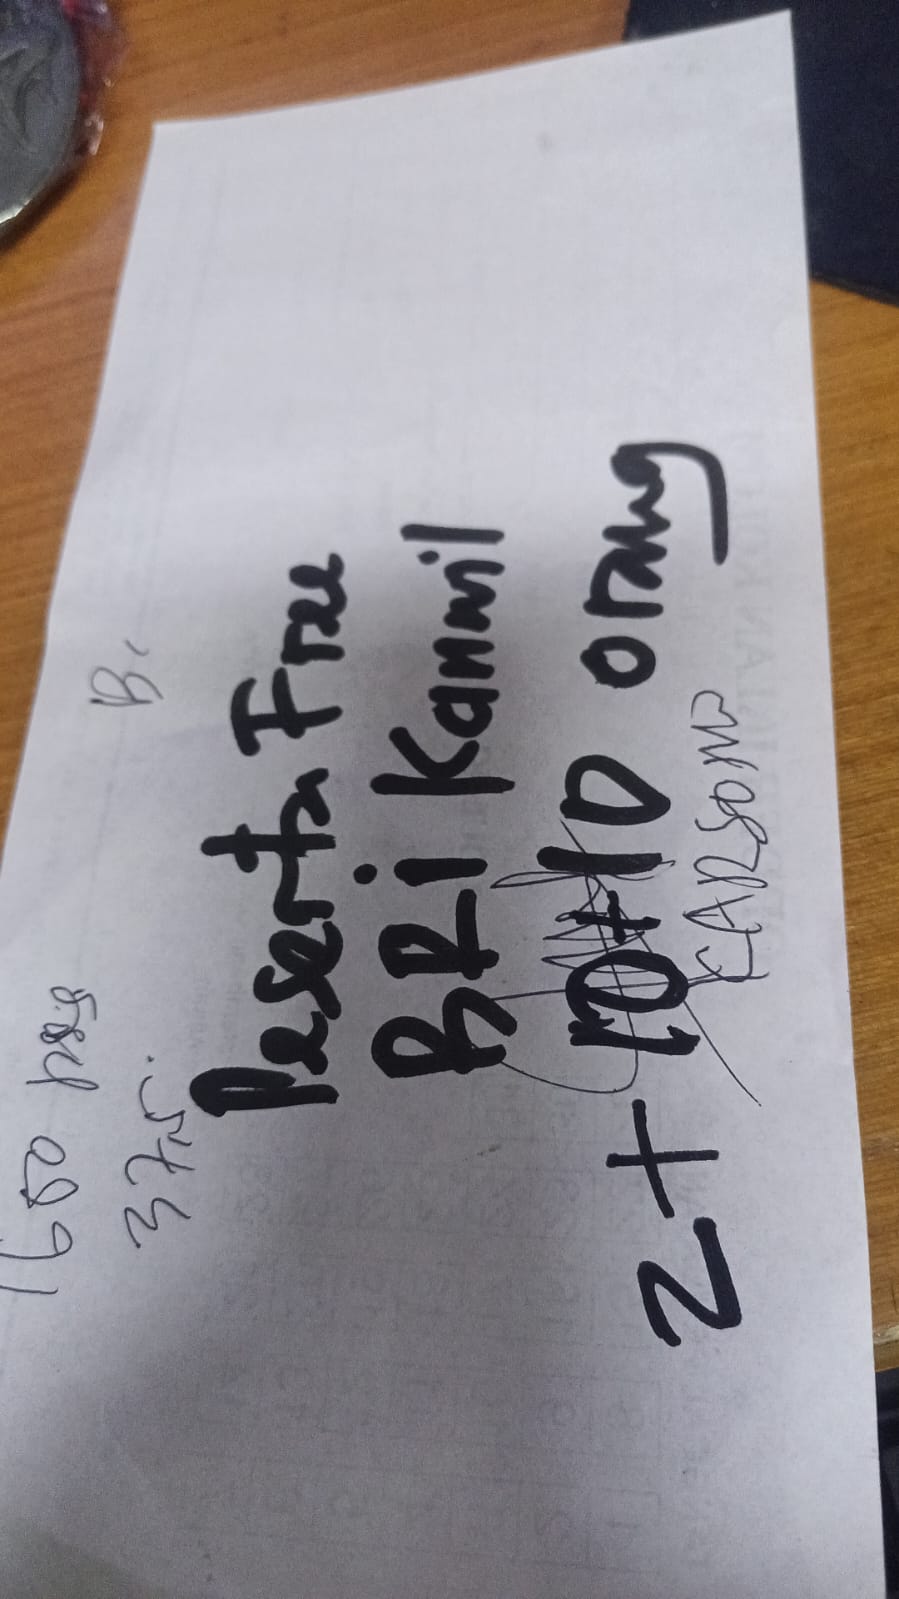 1600 psg
37,5.
B
Peserta Free
BRI Kanwil
2 + 10 + 10 orang
KARSONO